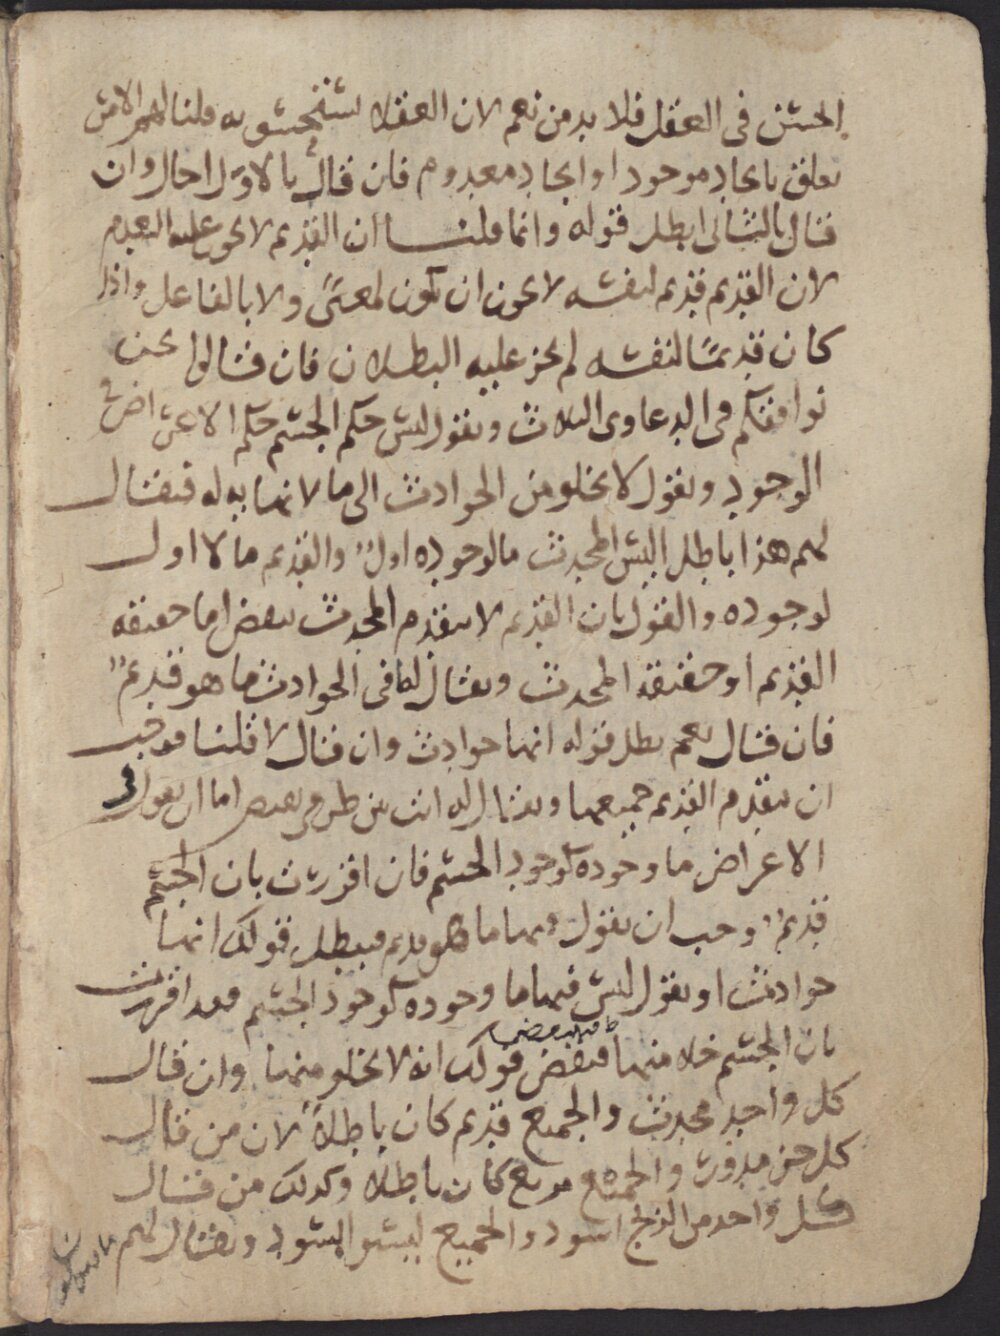 الحسن في العقل فلا بد من نعم لان العقلا يستحسنونه قلنا لهم الامر
تعلق بايجاد موجود او ايجاد معدوم فان قال بالاول احال وان
قال بالثاني ابطل قوله وانما قلنا ان القديم لا يجوز عليه العدم
لان القديم قديم لنفسه لا يجوز ان يكون لمعنى ولا بالفاعل واذا
كان قديمًا لنفسه لم يجز عليه البطلان فان قالوا نحن
نوافقكم في الدعاوى الثلاث ونقول ليس حكم الجسم حكم الاعراض في
الوجود ونقول لا يخلو من الحوادث الى ما لا نهاية له فيقال
لهم هذا باطل اليس المحدث ما لوجوده اولٌ والقديم ما لا اول
لوجوده والقول بان القديم لا يتقدم المحدث ينقض اما حقيقة
القديم او حقيقة المحدث ويقال له افي الحوادث ما هو قديمٌ
فان قال نعم بطل قوله انها حوادث وان قال لا قلنا فوجب
ان يتقدم القديم جميعها ويقال له انت بين طرفي نقيض اما ان تقول في
الاعراض ما وجوده كوجود الجسم فان اقررت بان الجسم
قديمٌ وجب ان تقول فيها ما هو قديم فيبطل قولك انها
حوادث او تقول ليس فيها ما وجوده كوجود الجسم فقد اقررت
بان الجسم خلا منها فينقض قولك انه لا يخلو منها وان قال
كل واحد محدث والجميع قديم كان باطلاً لان من قال
كل جزء مدور والجميع مربع كان باطلا وكذلك من قال
كل واحد من الزنج اسود والجميع ليسوا بسود ويقال لهم